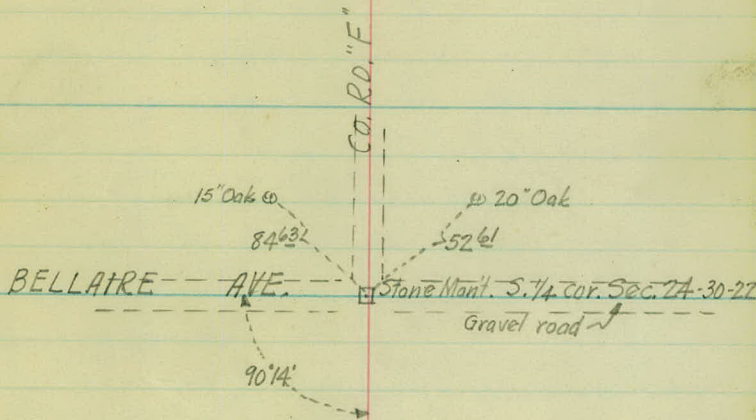 CO. RD. "F"
15" Oak
20" Oak
84 63
52 61
BELLAIRE AVE.
Stone Mon't. S. 1/4 cor. Sec. 24-30-22
Gravel road
90°14'